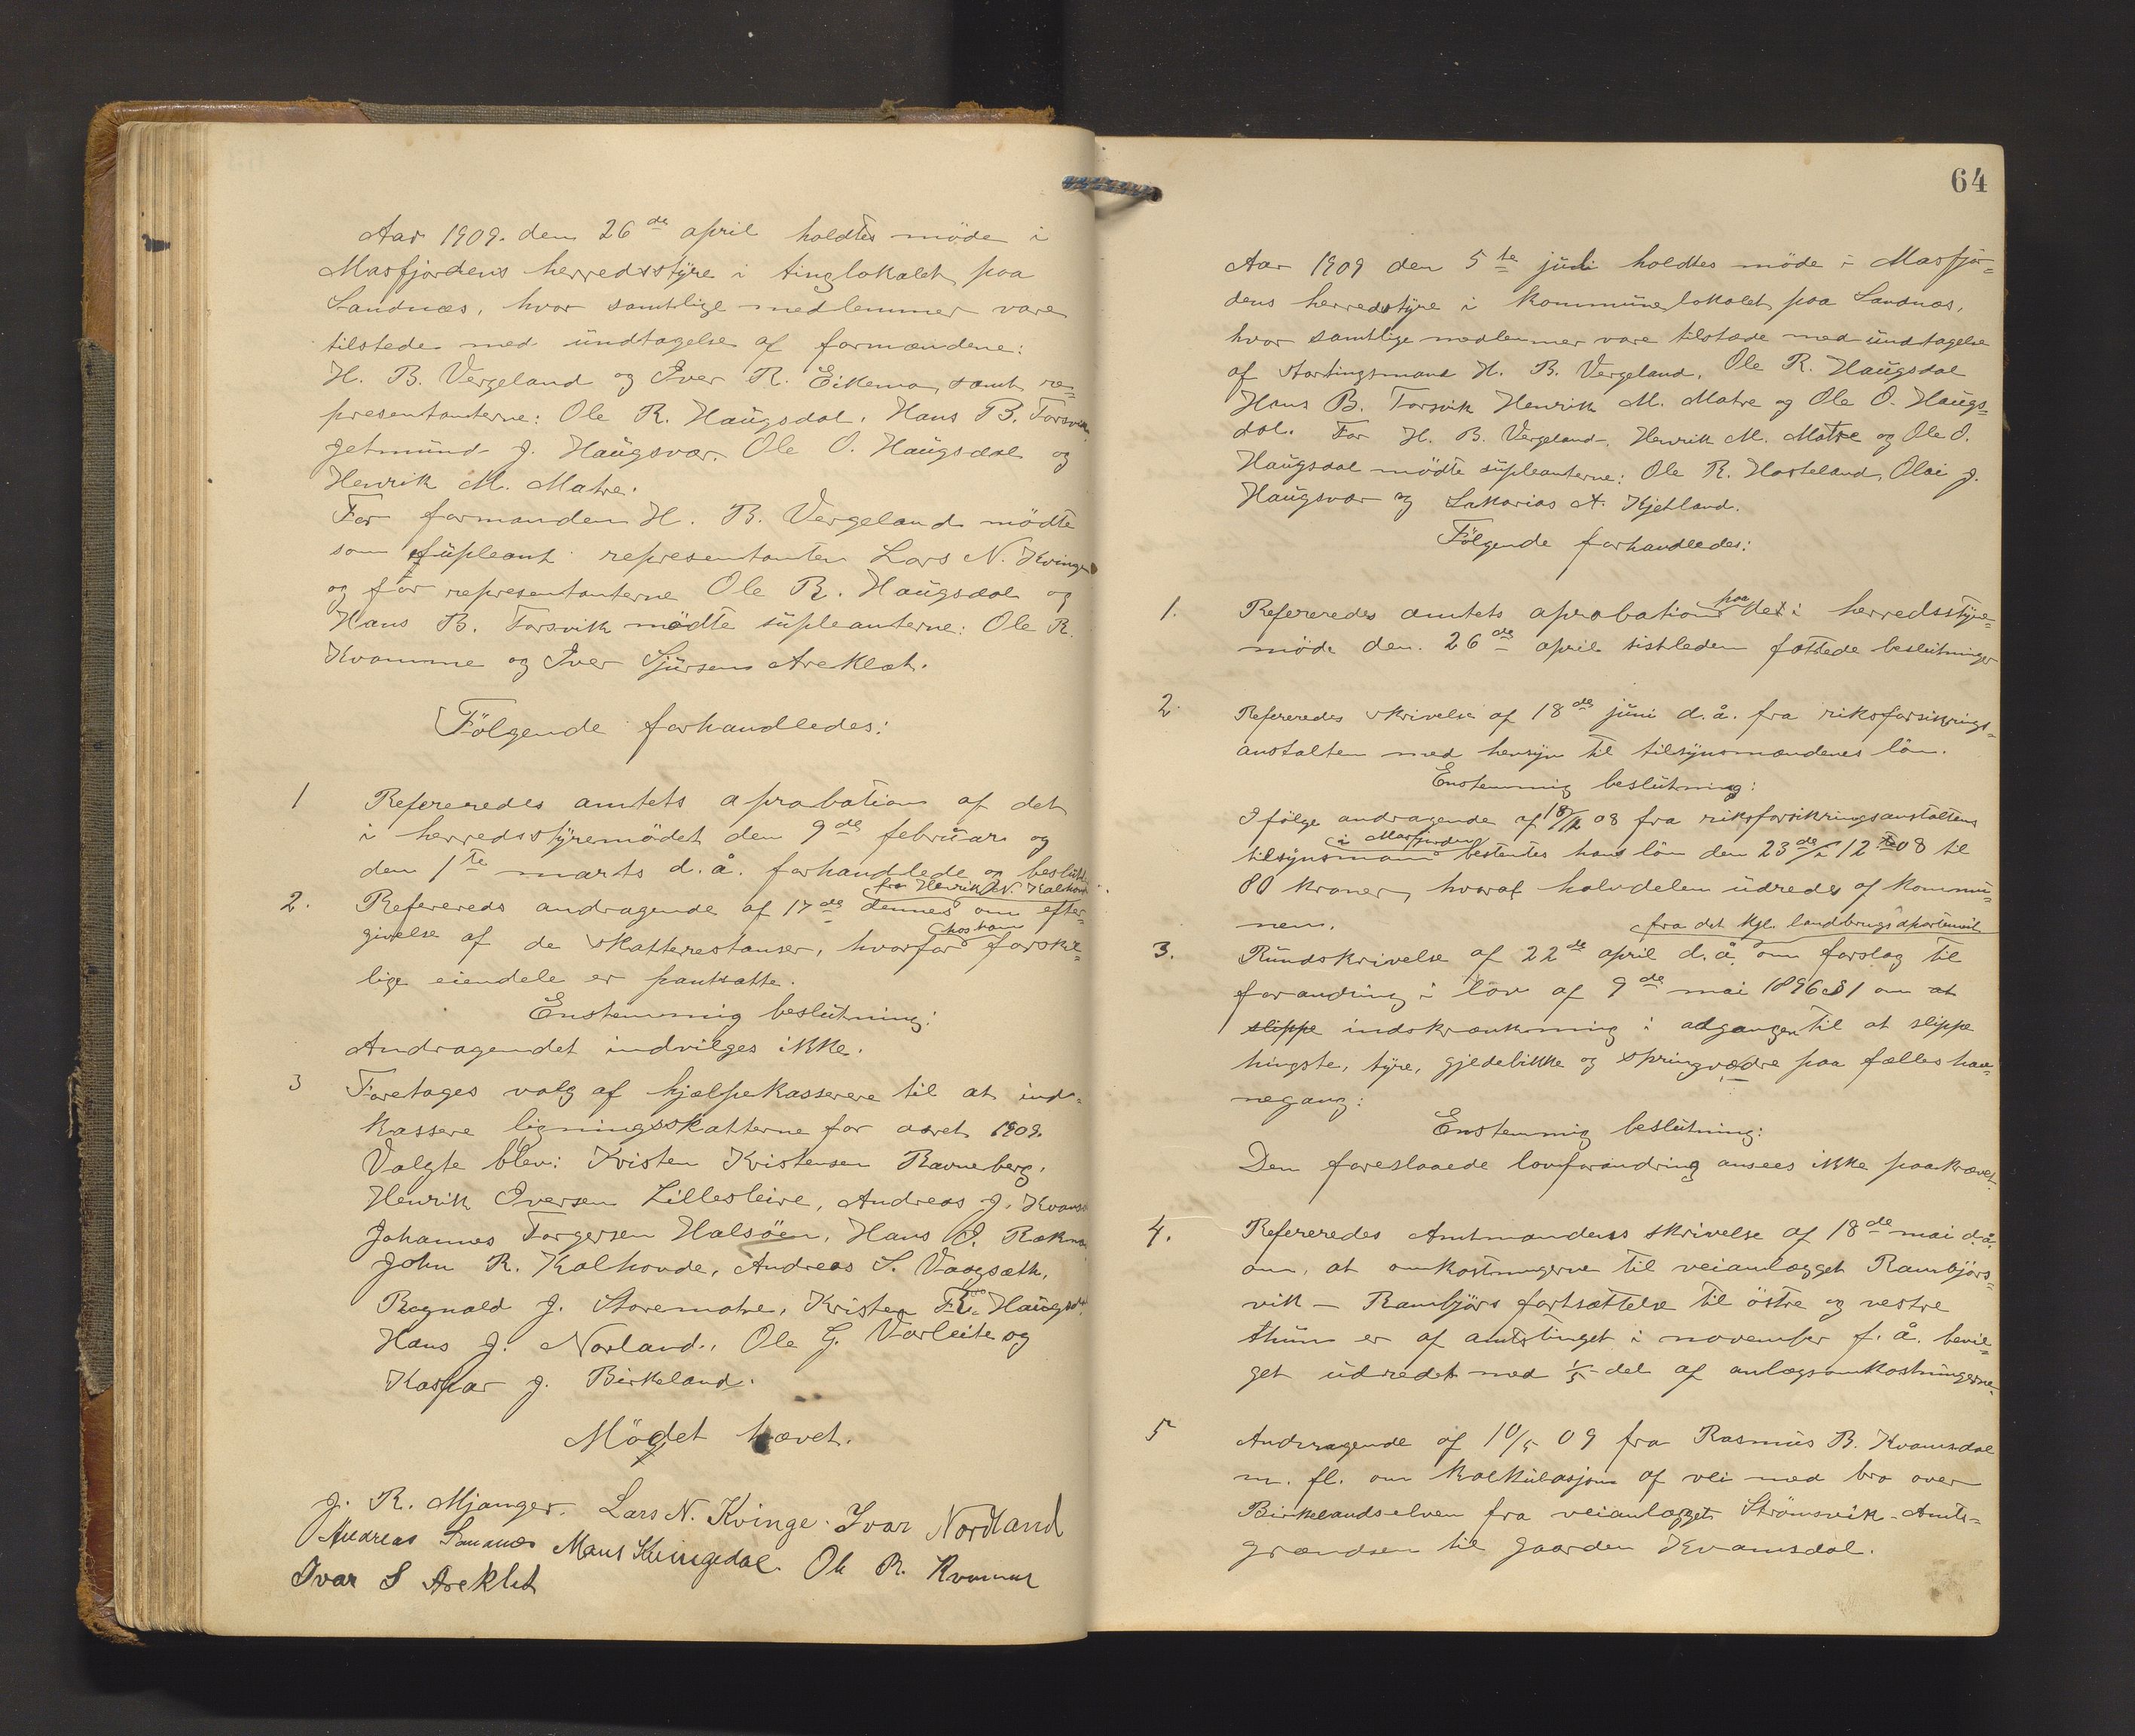 Aar 1909. den 26de april holdtes möde i
Masfjordens herredsstyre i tinglokalet paa
Sandnæs, hvor samtlige medlemmer vare
tilstede med undtagelse af formændene:
H. B. Vergeland og Iver R. Eikemo, samt re=
presentanterne: Ole R. Haugsdal, Hans B. Torsvik
Jetmund J. Haugsvær, Ole O. Haugsdal og
Henrik M. Matre.
For formanden H. B. Vergeland mödte
som supleant representanten Lars N. Kvinge
og for representanterne Ole R. Haugsdal og
Hans B. Torsvik mödte supleanterne: Ole R.
Kvamme og Iver Sjursen Areklet.
Fölgende forhandledes:
1 Refereredes amtets aprobation af det
i herredsstyremödet den 9de februar og
den 1te marts d. å. forhandlede og beslutt
fra Henrik N. Kalhovd
2. Referereds andragende af 17de dennes om efter=
hos ham
givelse af de skatterestanser, hvorfor forskel=
lige eiendele er pantsatte.
Enstemmig beslutning:
Andragendet indvilges ikke.
3 Foretages valg af hjælpekasserere til at ind=
kassere ligningsskatterne for aaret 1909.
Valgte blev: Kristen Kristensen Ravneberg,
Henrik Iversen Lillesleire, Andreas J. Kvams
Johannes Torgersen Halsöen, Hans O. Rækna
John R. Kalhovde, Andreas S. Vaagsæth,
Ragnald J. Storematre, Kristen R. Haugsd.
Hans J. Norland, Ole G. Varleite og
Kaspar J. Birkeland.
Mödet hævet.
J. R. Mjanger. Lars N. Kvinge. Ivar Nordland
Andreas Sandnæs Mons Kvingedal. Ole R. Kvamme
Ivar S Areklet
64
Aar 1909 den 5te juli holdtes möde i Masfjor=
dens herredstyre i kommunelokalet paa Sandnæs,
hvor samtlige medlemmer vare tilstæde med undtagelse
af stortingsmand H. B. Vergeland, Ole R. Haugsdal
Hans B. Torsvik Henrik M. Matre og Ole O. Haugs=
dal. For H. B. Vergeland, Henrik M. Matre og Ole O.
Haugsdal mödte supleanterne: Ole R. Hosteland, Olai J.
Haugsvær og Sakarias A. Kjetland.
Fölgende forhandledes:
paa
1. Refereredes amtets aprobation det i herredsstyre=
möde den 26de april sistleden fattede beslutninger
2. Refereredes skrivelse af 18de juni d. å. fra riksforsikrings=
anstalten med hensyn til tilsynsmændenes lön.
Enstemmig beslutning:
I fölge andragende af 18/12 08 fra riksforsikringsanstaltens
i Masfjorden
tilsynsmand bestemtes hans lön den 23de/12 08 til
80 kroner, hvoraf halvdelen udredes af kommu=
nen.
fra det kgl. landbrugsdpartement
3. Rundskrivelse af 22de april d. å. om forslag til
forandring i lov af 9de mai 1896 § 1 om at
slippe indskrænkning i adgangen til at slippe
hingste, tyre, gjedebukke og springvædre paa fælles hav=
negang:
Enstemmig beslutning:
Den foreslaaede lovforandring ansees ikke paakrævet.
4. Refereredes Amtmandens skrivelse af 18de mai d. å.
om, at omkostningerne til veianlægget Rambjørs=
vik – Rambjörs fortsættelse til östre og vestre
thun er af amtstinget i november f. å. bevil=
get udredet med 1/5 del af anlægsomkostningerne.
5 Andragende af 10/5 09 fra Rasmus B. Kvamsdal
m. fl. om kalkulasjon af vei med bro over
Birkelandselven fra veianlægget Strömsvik – Amts=
grændsen til gaarden Kvamsdal.